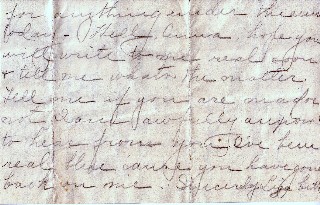 for anything under the sun
today - Well Anna hope you
will write to me real soon
& tell me whats the matter
Tell me if you are mad or
not I am awfully anxious
to hear from you. I've been
real blue cause you have gone
back on me. Sincerely